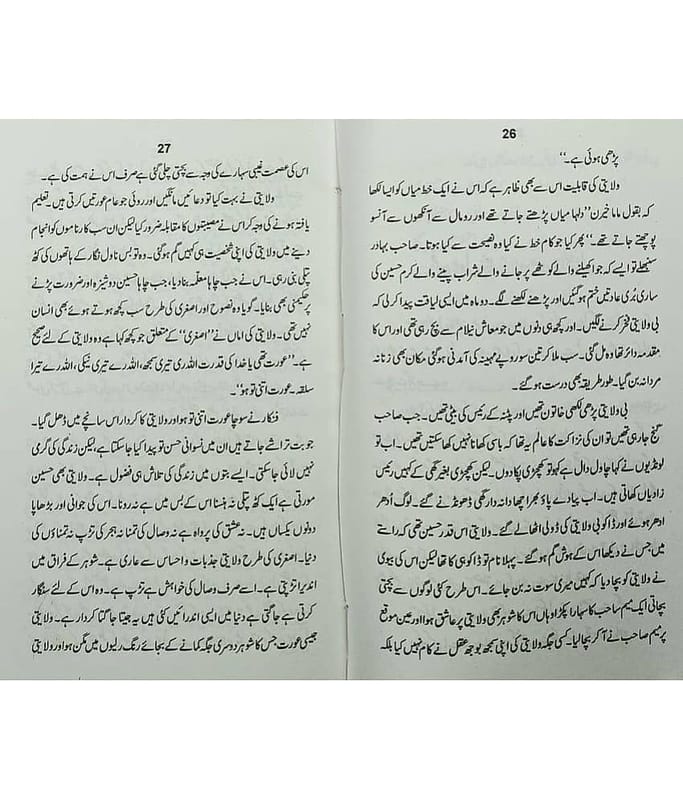 26
پڑھی ہوئی ہے۔‘‘
ولایتی کی قابلیت اس سے بھی ظاہر ہے کہ اس نے ایک خط میاں کو ایسا لکھا
کہ بقول ماما خیرن ’’دلہا میاں پڑھتے جاتے تھے اور رومال سے آنکھوں سے آنسو
پوچھتے جاتے تھے۔‘‘ پھر کیا جو کام خط نے کیا وہ نصیحت سے کیا ہوتا۔ صاحب بہادر
سنبھلے تو ایسے کہ جوا کھیلنے والے کوٹھے پر جانے والے شراب پینے والے کرم حسین کی
ساری بُری عادتیں ختم ہو گئیں اور پڑھنے لکھنے لگے۔ دو ماہ میں ایسی لیاقت پیدا کر لی کہ
بی ولایتی فخر کرنے لگیں۔ اور کچھ ہی دنوں میں جو معاش نیلام سے بچ رہی تھی اور اس کا
مقدمہ دائر تھا وہ مل گئی۔ سب ملا کر تین سو روپے مہینہ کی آمدنی ہو گئی مکان بھی زنانہ
مردانہ بن گیا۔ طور طریقہ بھی درست ہو گئے۔
بی ولایتی پڑھی لکھی خاتون تھیں اور پٹنہ کے رئیس کی بیٹی تھیں۔ جب صاحب
گنج جا رہی تھیں تو ان کی نزاکت کا عالم یہ تھا کہ باسی کھانا نہیں کھا سکتیں تھیں۔ اب تو
لونڈیوں نے کہا چاول دال ہے کہو تو کھچڑی پکا دوں۔ لیکن کھچڑی بغیر گھی کے کہیں رئیس
زادیاں کھاتی ہیں۔ اب پیادے پاؤ بھر اچھا دانہ دار گھی ڈھونڈنے گئے۔ لوگ اُدھر
ادھر ہوئے اور ڈاکو بی ولایتی کی ڈولی اٹھا لے گئے۔ ولایتی اس قدر حسین تھی کہ راستے
میں جس نے دیکھا اس کے ہوش گم ہو گئے۔ پہلا نام تو ڈاکو ہی کا تھا لیکن اس کی بیوی
نے ولایتی کو بچا دیا کہ کہیں میری سوت نہ بن جائے۔ اس طرح کئی لوگوں سے بچتی
بچاتی ایک میم صاحب کا سہارا پکڑا وہاں اس کا شوہر بھی ولایتی پر عاشق ہوا اور عین موقع
پر میم صاحب نے آ کر بچا لیا۔ کسی جگہ ولایتی کی اپنی سمجھ بوجھ عقل نے کام نہیں کیا بلکہ
27
اس کی عصمت غیبی سہارے کی وجہ سے بچتی چلی گئی ہے صرف اس نے ہمت کی ہے۔
ولایتی نے بہت کیا تو دعائیں مانگیں اور روئی جو عام عورتیں کرتی ہیں۔ تعلیم
یافتہ ہونے کی وجہ کر اس نے مصیبتوں کا مقابلہ ضرور کیا لیکن ان سب کارناموں کو انجام
دینے میں ولایتی کی اپنی شخصیت ہی کہیں گم ہو گئی۔ وہ تو بس ناول نگار کے ہاتھوں کی کٹھ
پتلی بنی رہی۔ اس نے جب چاہا معلّمہ بنا دیا، جب چاہا حسین دوشیزہ اور ضرورت پڑنے
پر حکیم بھی بنایا۔ گویا وہ نصوح اور اصغری کی طرح سب کچھ ہوتے ہوئے بھی انسان
نہیں تھی۔ ولایتی کی اماں نے ’’اصغری‘‘ کے متعلق جو کچھ کہا ہے وہ ولایتی کے لئے صحیح
ہے۔ ’’عورت تھی یا خدا کی قدرت اللہ ری تیری سمجھ، اللہ رے تیری نیکی، اللہ رے تیرا
سلقہ۔ عورت اتنی تو ہو‘‘۔
فنکار نے سوچا عورت اتنی تو ہو اور ولایتی کا کردار اس سانچے میں ڈھل گیا۔
جو بت تراشے جاتے ہیں ان میں نسوانی حسن تو پیدا کیا جا سکتا ہے، لیکن زندگی کی گرمی
نہیں لائی جا سکتی۔ ایسے بتوں میں زندگی کی تلاش ہی فضول ہے۔ ولایتی بھی حسین
مورتی ہے ایک کٹھ پتلی نہ ہنسنا اس کے بس میں ہے نہ رونا۔ اس کی جوانی اور بڑھاپا
دونوں یکساں ہیں۔ نہ عشق کی پرواہ ہے نہ وصال کی تمنا نہ ہجر کی تڑپ نہ تمناؤں کی
دنیا۔ اصغری کی طرح ولایتی جذبات و احساس سے عاری ہے۔ شوہر کے فراق میں
اندیرا تڑپتی ہے۔ اسے صرف وصال کی خواہش ہے تڑپ ہے۔ وہ اس کے لئے سنگار
کرتی ہے جاگتی ہے دنیا میں ایسی اندرائیں کئی ہیں یہ جیتا جاگتا کردار ہے۔ ولایتی
جیسی عورت جس کا شوہر دوسری جگہ کمانے کے بجائے رنگ رلیوں میں مگن ہو اور ولایتی